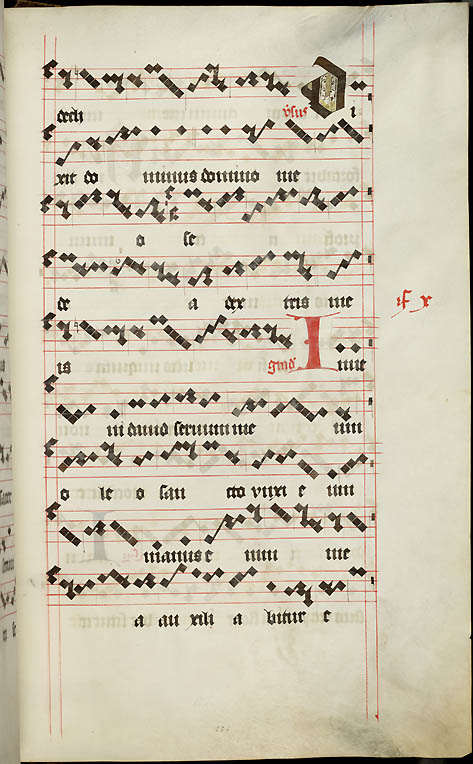 v̄sus Di
xit do minus domino me
o se
de a dex tris me
is grad̄ Inue
ni dauid seruum me um
o le o san cto vnxi e um
manus e nim me
a au xili a bitur e